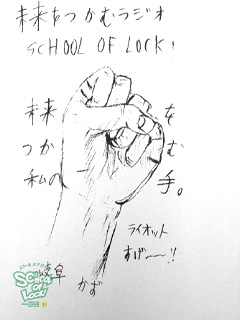 未来をつかむラジオ
SCHOOL OF LOCK!
未来を
つかむ
私の手。
ライオット
すげ〜!!
岐阜 かず
SCHOOL
OF
LOCK!